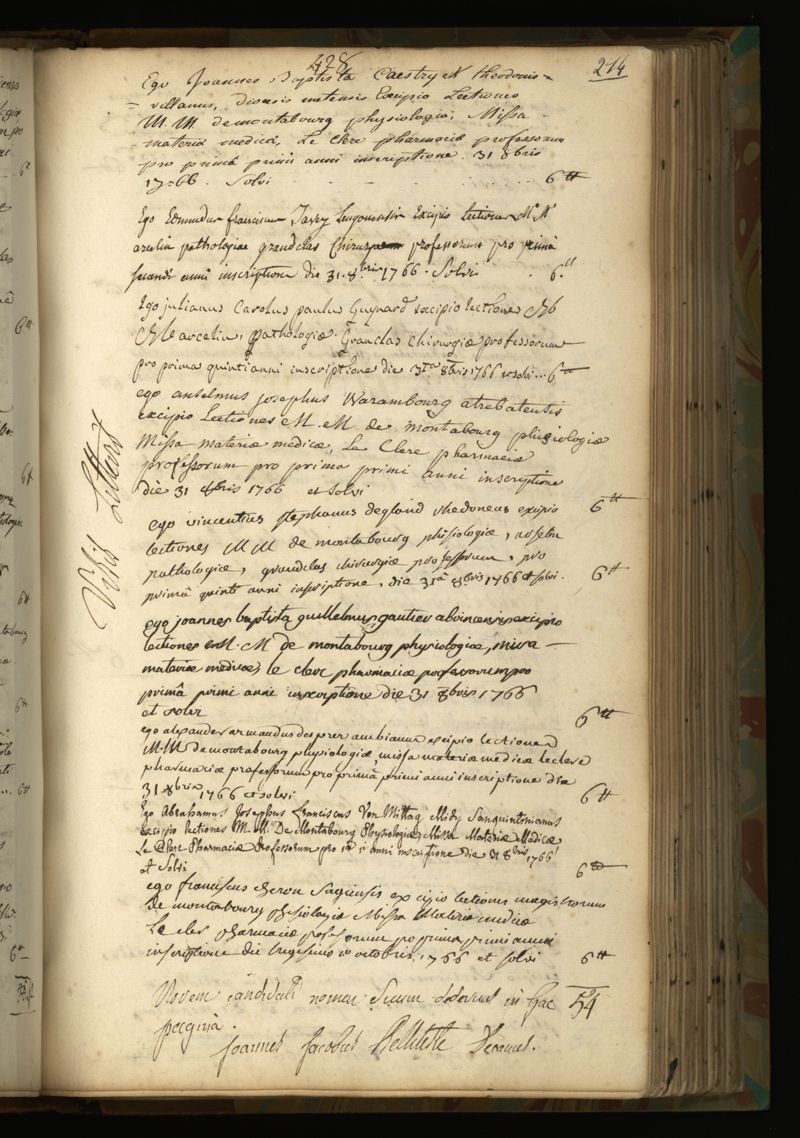 428
214
Ego Joannes Baptista Caestryck theodonis=
=villanus, diocesis metensis Excipio Lectiones
M. M. demontabourg physiologiæ, Missa
materiæ medicæ, Le Clerc pharmaciæ professorum
pro primâ primi anni inscriptione. 31 8bris
1766. Solvi 6tt
Ego Edmundus franciscus Lingonensis Excipio Lectiones Mr Mr
azelin pathologiæ grandclas Chirurgiæ professorum pro primâ
secundi anni inscriptione die 31. 8bris 1766. Solvi 6tt
Ego julianus Carolus paulus Guynard excipio lectiones
M azcelin, pathologiæ. Grandclas Chirurgiæ professorum
pro prima quinti anni inscriptione die 31ta 8bris 1766 et solvi... 6tt
ego anselmus josephus Warambourg atrebatensis
excipio Lectiones M. M. de montabourg phisiologiæ
Missa materiæ medicæ, Le Clerc pharmaciæ
professorum pro prima primi anni inscriptione
die 31 8bris 1766 et solvi 6tt
ego vincentius stephanus degland rhedoneus excipio
lectiones MM de montabourg phisiologiæ, azelin
pathologiæ, grandclas chirurgiæ professorum, pro
primâ quinti anni inscriptione, die 31â 8bris 1766 et solvi. 6tt
ego joannes baptista guillelmus gautier abrincensis excipio
lectiones M. M de montabourg physiologiæ, missa
materiæ medicæ, le clerc pharmaciæ professorum pro
primâ primi anni inscriptione die 31 8bris 1766
et solvi 6tt
ego alexander armandus desprez ambianus excipio lectiones
M.M demontabourg physiologiæ, missa materiæ medicæ leclerc
pharmaciæ professorum pro primâ primi anni inscriptione die
31 8bris 1766 et solvi 6tt
Ego Abrahamus Josephus Franciscus Von Mittag Sanquintinianus
excipio lectiones M. M. De Montabourg Physiologiæ, Missa Materiæ Medicæ
Le Clerc Pharmaciæ Professorum pro 1a 1i anni inscriptione die 31 8bris 1766
et Solvi 6tt
ego franciscus cheron Sagiensis excipio lectiones magistrorum
de montabourg phisiologiæ Missa Materiæ medicæ
Le clerc pharmaciæ professorum pro prima primi anni
inscriptione die trigesimo 1o octobris, 1766 et solvi 6tt
Vidit Letteust
Novem candidati nomen Suum dederunt in hac 54tt
pagina.
Joannes Jacobus Belleteste Decanus.